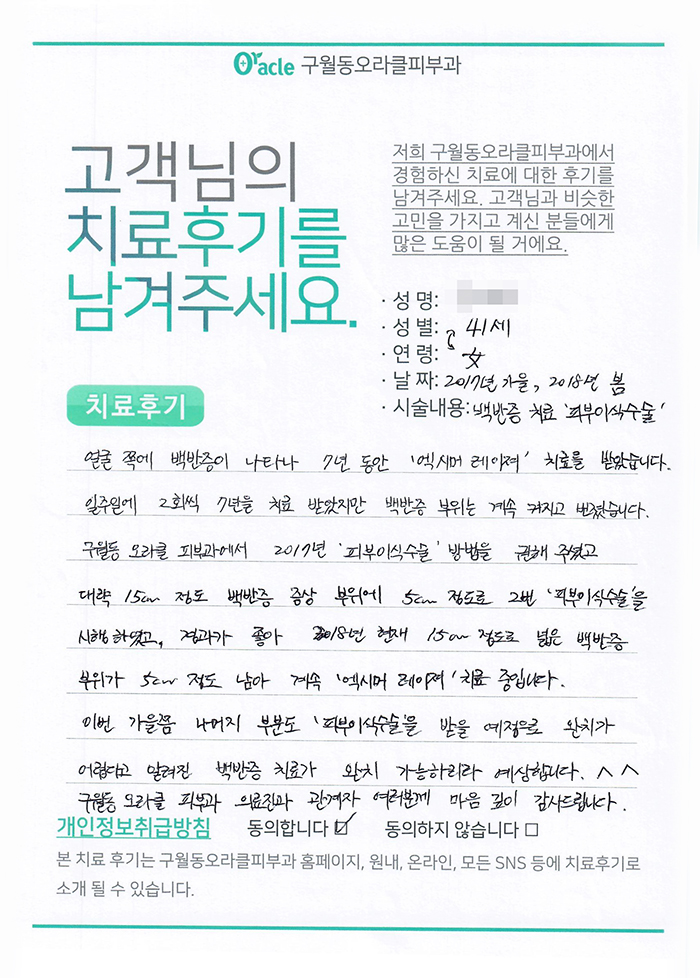 Oracle 구월동오라클피부과
고객님의
치료후기를
남겨주세요.
저희 구월동오라클피부과에서
경험하신 치료에 대한 후기를
남겨주세요. 고객님과 비슷한
고민을 가지고 계신 분들에게
많은 도움이 될 거에요.
· 성 명:
· 성 별: 41세
· 연 령: 女
· 날 짜: 2017년 가을, 2018년 봄
· 시술내용: 백반증 치료 '피부이식수술'
치료후기
얼굴 쪽에 백반증이 나타나 7년 동안 '엑시머 레이져' 치료를 받았습니다.
일주일에 2회씩 7년을 치료 받았지만 백반증 부위는 계속 커지고 번졌습니다.
구월동 오라클 피부과에서 2017년 '피부이식수술' 방법을 권해 주셨고
대략 15cm 정도 백반증 증상 부위에 5cm 정도로 2번 '피부이식수술'을
시행하였고, 결과가 좋아 2018년 현재 15cm 정도로 넓은 백반증
부위가 5cm 정도 남아 계속 '엑시머 레이져' 치료 중입니다.
이번 가을쯤 나머지 부분도 '피부이식수술'을 받을 예정으로 완치가
어렵다고 알려진 백반증 치료가 완치 가능하리라 예상합니다. ^^
구월동 오라클 피부과 의료진과 관계자 여러분께 마음 깊이 감사드립니다.
개인정보취급방침 동의합니다 ☑ 동의하지 않습니다 □
본 치료 후기는 구월동오라클피부과 홈페이지, 원내, 온라인, 모든 SNS 등에 치료후기로
소개 될 수 있습니다.